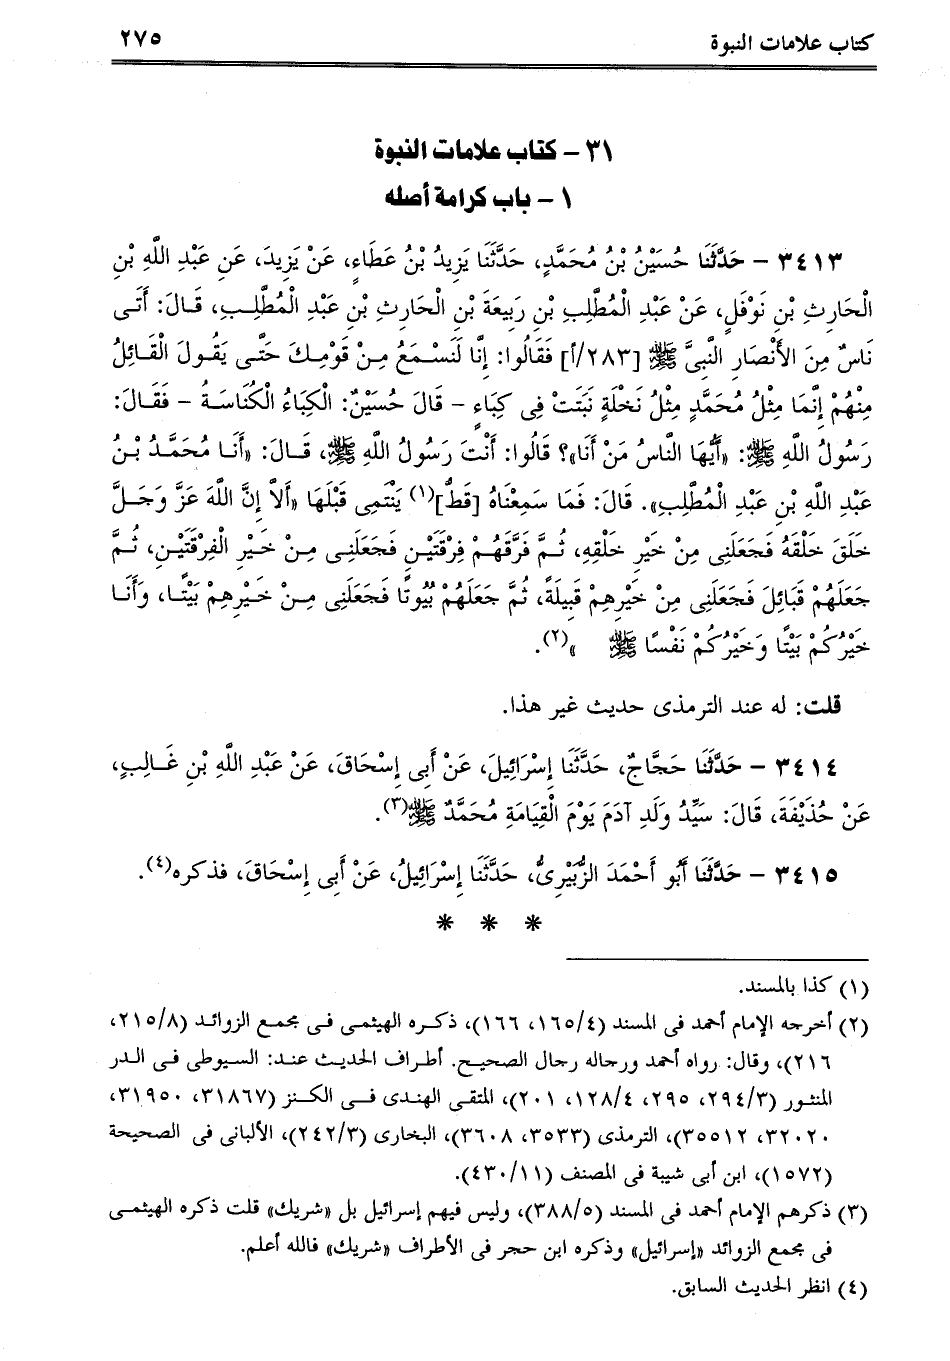 كتاب علامات النبوة ٢٧٥
٣١ – كتاب علامات النبوة
١ – باب كرامة أصله
٣٤١٣ – حَدَّثَنَا حُسَيْنُ بْنُ مُحَمَّدٍ، حَدَّثَنَا يَزِيدُ بْنُ عَطَاءٍ، عَنْ يَزِيدَ، عَنِ عَبْدِ اللَّهِ بْنِ
الْحَارِثِ بْنِ نَوْفَلٍ، عَنْ عَبْدِ الْمُطَّلِبِ بْنِ رَبِيعَةَ بْنِ الْحَارِثِ بْنِ عَبْدِ الْمُطَّلِبِ، قَالَ: أَتَى
نَاسٌ مِنَ الأَنْصَارِ النَّبِىَّ ﷺ [٢٨٣/أ] فَقَالُوا: إِنَّا لَنَسْمَعُ مِنْ قَوْمِكَ حَتَّى يَقُولَ الْقَائِلُ
مِنْهُمْ إِنَّمَا مِثْلُ مُحَمَّدٍ مِثْلُ نَخْلَةٍ نَبَتَتْ فِى كِبَاءٍ – قَالَ حُسَيْنٌ: الْكِبَاءُ الْكُنَاسَةُ – فَقَالَ:
رَسُولُ اللَّهِ ﷺ: «أَيُّهَا النَّاسُ مَنْ أَنَا»؟ قَالُوا: أَنْتَ رَسُولُ اللَّهِ ﷺ، قَالَ: «أَنَا مُحَمَّدُ بْنُ
عَبْدِ اللَّهِ بْنِ عَبْدِ الْمُطَّلِبِ». قَالَ: فَمَا سَمِعْنَاهُ [قَطُّ](١) يَنْتَمِى قَبْلَهَا «أَلاَ إِنَّ اللَّهَ عَزَّ وَجَلَّ
خَلَقَ خَلْقَهُ فَجَعَلَنِى مِنْ خَيْرِ خَلْقِهِ، ثُمَّ فَرَّقَهُمْ فِرْقَتَيْنِ فَجَعَلَنِى مِنْ خَيْرِ الْفِرْقَتَيْنِ، ثُمَّ
جَعَلَهُمْ قَبَائِلَ فَجَعَلَنِى مِنْ خَيْرِهِمْ قَبِيلَةً، ثُمَّ جَعَلَهُمْ بُيُوتًا فَجَعَلَنِى مِنْ خَيْرِهِمْ بَيْتًا، وَأَنَا
خَيْرُكُمْ بَيْتًا وَخَيْرُكُمْ نَفْسًا ﷺ »(٢).
قلت: له عند الترمذى حديث غير هذا.
٣٤١٤ – حَدَّثَنَا حَجَّاجٌ، حَدَّثَنَا إِسْرَائِيلَ، عَنْ أَبِى إِسْحَاقَ، عَنْ عَبْدِ اللَّهِ بْنِ غَالِبٍ،
عَنْ حُذَيْفَةَ، قَالَ: سَيِّدُ وَلَدِ آدَمَ يَوْمَ الْقِيَامَةِ مُحَمَّدٌ ﷺ(٣).
٣٤١٥ – حَدَّثَنَا أَبُو أَحْمَدَ الزُّبَيْرِىُّ، حَدَّثَنَا إِسْرَائِيلُ، عَنْ أَبِى إِسْحَاقَ، فذكره(٤).
* * *
(١) كذا بالمسند.
(٢) أخرجه الإمام أحمد فى المسند (١٦٥/٤، ١٦٦)، ذكره الهيثمى فى مجمع الزوائد (٢١٥/٨،
٢١٦)، وقال: رواه أحمد ورجاله رجال الصحيح. أطراف الحديث عند: السيوطى فى الدر
المنثور (٢٩٤/٣، ٢٩٥، ١٢٨/٤، ٢٠١)، المتقى الهندى فى الكنز (٣١٨٦٧، ٣١٩٥٠،
٣٢٠٢٠، ٣٥٥١٢)، الترمذى (٣٥٣٣، ٣٦٠٨)، البخارى (٢٤٢/٣)، الألبانى فى الصحيحة
(١٥٧٢)، ابن أبى شيبة فى المصنف (٤٣٠/١١).
(٣) ذكرهم الإمام أحمد فى المسند (٣٨٨/٥)، وليس فيهم إسرائيل بل «شريك» قلت ذكره الهيثمى
فى مجمع الزوائد «إسرائيل» وذكره ابن حجر فى الأطراف «شريك» فالله أعلم.
(٤) انظر الحديث السابق.